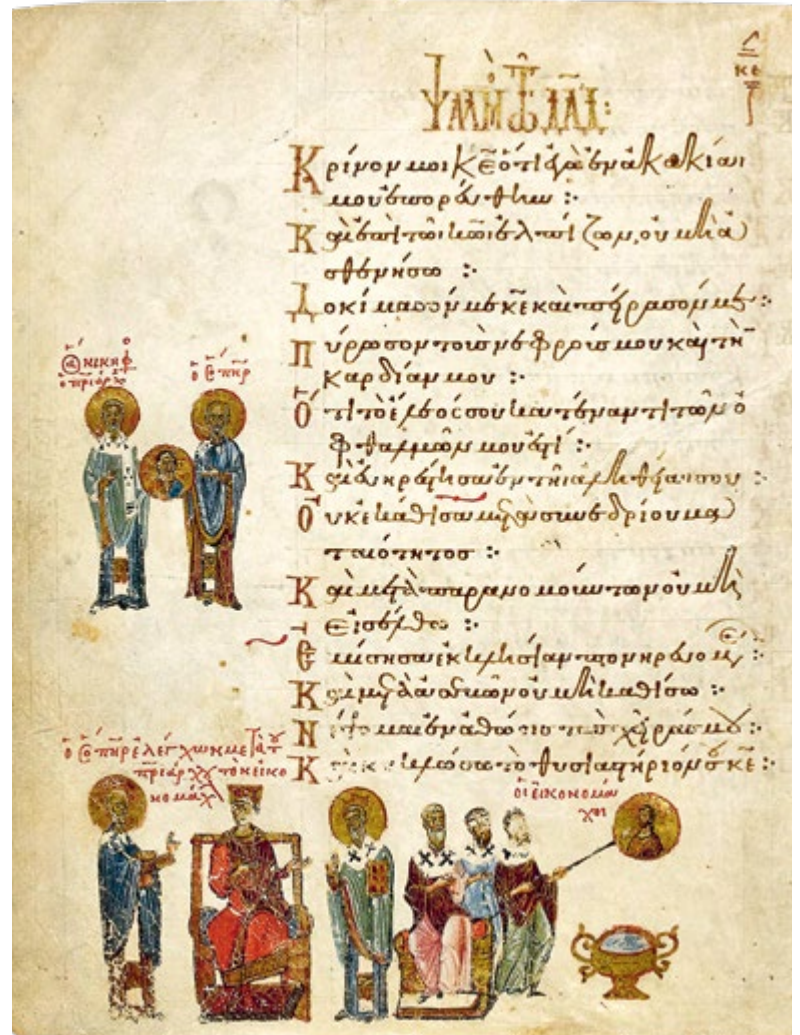 κε
Ψαλμ τῷ δα̅δ̅:
Κρίνον μοι κ̅ε̅ ὅτι ἐγὼ ἐν ἀκακίαι
μου ἐπορεύθην :·
Καὶ ἐπὶ τῶι κ̅ω̅ι̅ ἐλπίζων, οὐ μὴ ἀ
σθενήσω :·
Δοκίμασόν με κ̅ε̅ καὶ πείρασόν με :·
Πύρωσον τοὺς νεφρούς μου καὶ τὴν
καρδίαν μου :·
Ὅτι τὸ ἔλεός σου κατέναντι τῶν ὀ
φθαλμῶν μου ἐστί :·
Καὶ εὐηρέστησα ἐν τῆι ἀληθείαι σου :·
Οὐκ ἐκάθισα μετὰ συνεδρίου μα
ταιότητος :·
Καὶ μετὰ παρανομούντων οὐ μὴ
εἰσέλθω :·
Ἐμίσησα ἐκκλησίαν πονηρευομέ :·
Καὶ μετὰ ἀσεβῶν οὐ μὴ καθίσω :·
Νίψομαι ἐν ἀθώοις τὰς χεῖράς μου
Καὶ κυκλώσω τὸ θυσιαστήριόν σου κ̅ε̅ :·
ὁ ἅ νικηφ
ὁ πριάρχ
ὁ θ πηρ
ὁ ὁ πηρ ἐλέγχων μετὰ τ
πριάρχου τὸν εἰκο
νομάχ
οἱ εἰκονομά
χοι